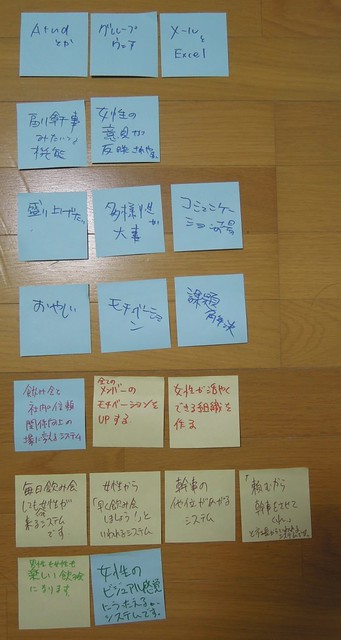 Atnd
とか
グループ
ウェア
メールと
Excel
副幹事
みたいな
機能
女性の
意見が
反映されやすい
盛り上げたい
多様性が
大事
コミュニケー
ションの場
おやじい
モチベーショ
ン
課題
解決
飲み会を
社内の信頼
関係向上の
場に変えるシステム
全ての
メンバーの
モチベーションを
UPする
女性が活やく
できる組織を
作る
毎日飲み会
いつも女性が
来るシステム
です
女性から
「早く飲み会
しましょう!」と
いわれるシステム
幹事の
地位が上がる
システム
「頼むから
幹事をさせて
くれ」
男性も女性も
楽しい飲み会
になります
女性の
ビジュアル感覚
にうったえる
システムです。